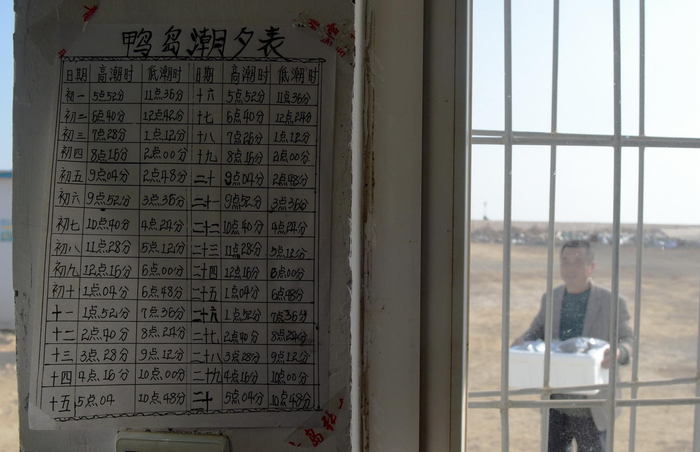 鸭岛潮夕表
日期 高潮时 低潮时 日期 高潮时 低潮时
初一 5点52分 11点36分 十六 5点52分 11点36分
初二 6点40分 12点42分 十七 6点40分 12点24分
初三 7点28分 1点12分 十八 7点26分 1点12分
初四 8点16分 2点00分 十九 8点16分 2点00分
初五 9点04分 2点48分 二十 9点04分 2点48分
初六 9点52分 3点36分 二十一 9点52分 3点36分
初七 10点40分 4点24分 二十二 10点40分 4点24分
初八 11点28分 5点12分 二十三 11点28分 5点12分
初九 12点16分 6点00分 二十四 12点16分 6点00分
初十 1点04分 6点48分 二十五 1点04分 6点48分
十一 1点52分 7点36分 二十六 1点52分 7点36分
十二 2点40分 8点24分 二十七 2点40分 8点24分
十三 3点28分 9点12分 二十八 3点28分 9点12分
十四 4点16分 10点00分 二十九 4点16分 10点00分
十五 5点04 10点48分 三十 5点04分 10点48分